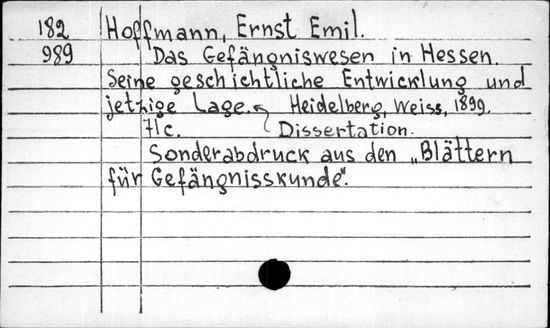 182 Hoffmann, Ernst Emil.
989 Das Gefängniswesen in Hessen.
Seine geschichtliche Entwicklung und
jetzige Lage. Heidelberg, Weiss, 1899.
7lc. Dissertation.
Sonderabdruck aus den „Blättern
für Gefängnisskunde".